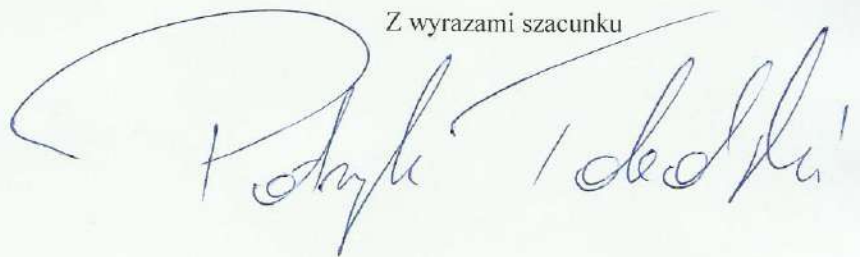 Z wyrazami szacunku
Patryk